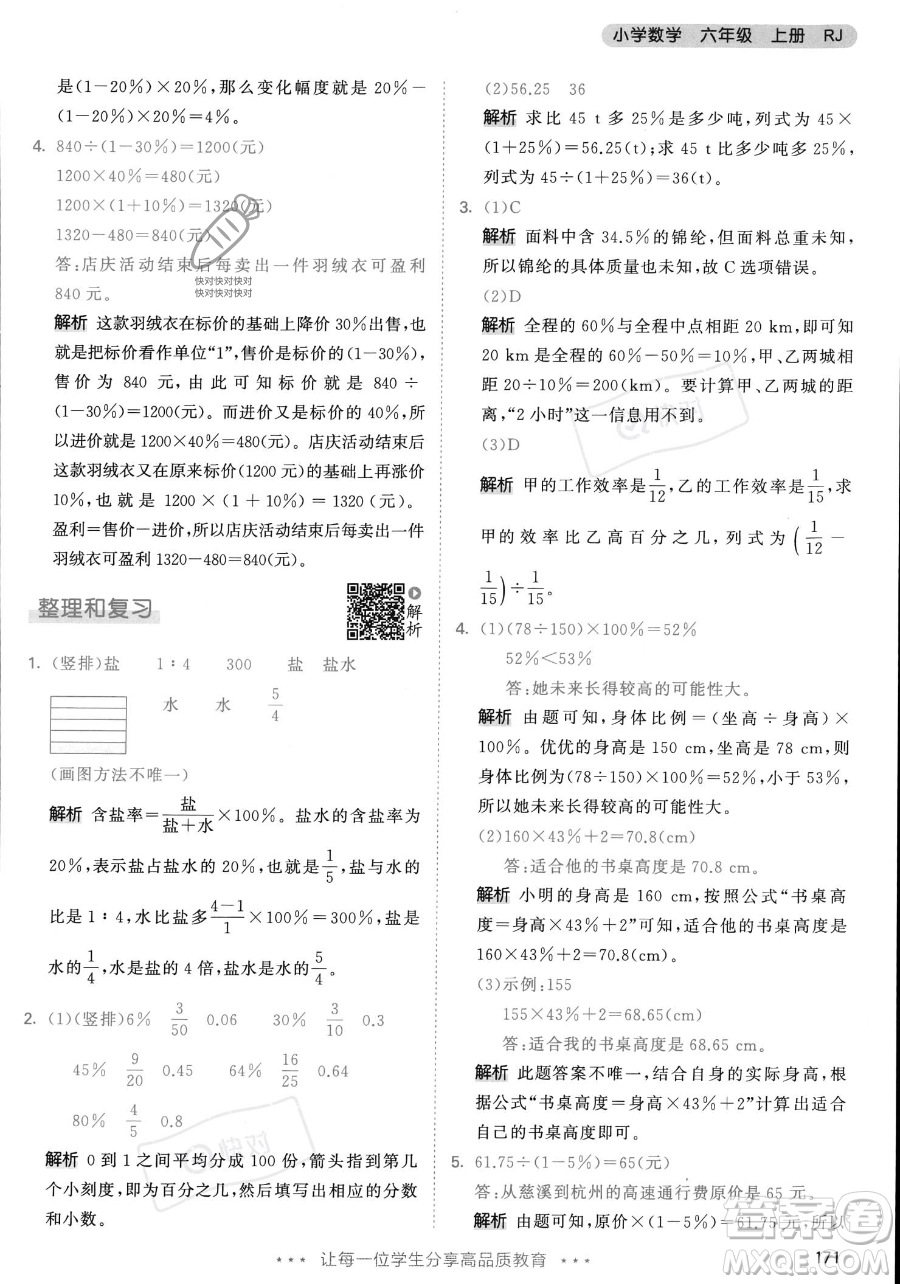 小学数学 六年级 上册 RJ
是(1-20%)×20%,那么变化幅度就是 20%-
(1-20%)×20%=4%。
4. 840÷(1-30%)=1200(元)
1200×40%=480(元)
1200×(1+10%)=1320(元)
1320-480=840(元)
答:店庆活动结束后每卖出一件羽绒衣可盈利
840 元。
快对快对快对
快对快对快对
解析 这款羽绒衣在标价的基础上降价 30%出售,也
就是把标价看作单位“1”,售价是标价的(1-30%),
售价为 840 元。由此可知标价是 840÷
(1-30%)=1200(元)。而进价又是标价的 40%,所
以进价就是 1200×40%=480(元)。店庆活动结束后
这款羽绒衣又在原来标价(1200 元)的基础上再涨价
10%,也就是 1200×(1+10%)=1320(元)。
盈利=售价-进价,所以店庆活动结束后每卖出一件
羽绒衣可盈利 1320-480=840(元)。
整理和复习
解析
1. (竖排)盐 1∶4 300 盐 盐水
水 水 5/4
(画图方法不唯一)
解析 含盐率=盐/(盐+水)×100%。盐水的含盐率为
20%,表示盐占盐水的 20%,也就是 1/5,此时盐与水的
比是 1∶4,水比盐多(4-1)/1×100%=300%,盐是
水的 1/4,水是盐的 4 倍,盐水是水的 5/4。
2. (1)(竖排)6% 3/50 0.06 30% 3/10 0.3
45% 9/20 0.45 64% 16/25 0.64
80% 4/5 0.8
解析 0 到 1 之间平均分成 100 份,箭头指到第几
个小刻度,即为百分之几,然后再化成相应的分数
和小数。
(2)56.25 36
解析 求比 45 t 多 25%是多少吨,列式为 45×
(1+25%)=56.25(t);求 45 t 比多少吨多 25%,
列式为 45÷(1+25%)=36(t)。
3. (1)C
解析 面料中含 34.5%的锦纶,但面料总重未知,
所以锦纶的具体质量也未知,故 C 选项错误。
(2)D
解析 全程的 60%与全程中点相距 20 km,即可知
20 km 是全程的 60%-50%=10%,甲、乙两城相
距 20÷10%=200(km)。要计算甲、乙两城的距
离,“2 小时”这一信息用不到。
(3)D
解析 甲的工作效率是 1/12,乙的工作效率是 1/15,求
甲的效率比乙高百分之几,列式为(1/12-
1/15)÷1/15。
4. (1)(78÷150)×100%=52%
52%<53%
答:她未来长得较高的可能性大。
解析 由题可知,身体比例=(坐高÷身高)×
100%。优优的身高是 150 cm,坐高是 78 cm,则
身体比例为(78÷150)×100%=52%,小于 53%,
所以她未来长得较高的可能性大。
(2)160×43%+2=70.8(cm)
答:适合他的书桌高度是 70.8 cm。
解析 小明的身高是 160 cm,按照公式“书桌高
度=身高×43%+2”可知,适合他的书桌高度是
160×43%+2=70.8(cm)。
(3)示例:155
155×43%+2=68.65(cm)
答:适合我的书桌高度是 68.65 cm。
解析 此题答案不唯一,结合自身的实际身高,根
据公式“书桌高度=身高×43%+2”计算出适合自己
的书桌高度即可。
5. 61.75÷(1-5%)=65(元)
答:从慈溪到杭州的高速通行费原价是 65 元。
解析 由题可知,原价的(1-5%)是 61.75 元,所以
让每一位学生分享高品质教育
171